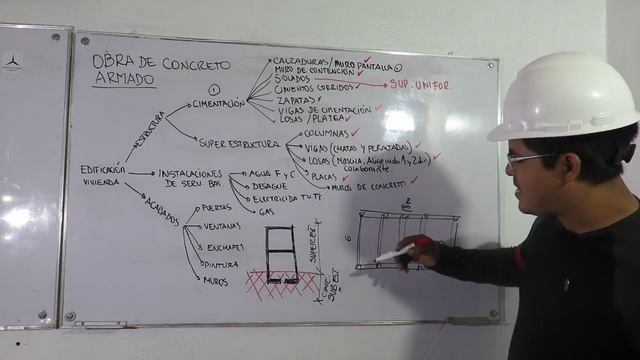 OBRA DE CONCRETO
ARMADO
EDIFICACIÓN
VIVIENDA
ESTRUCTURA
1
CIMENTACIÓN
CALZADURAS/MURO PANTALLA
MURO DE CONTENCIÓN
SOLADOS
SUP. UNIFOR.
CIMIENTOS CORRIDOS
ZAPATAS
VIGAS DE CIMENTACIÓN
LOSAS/PLATEA
SUPER ESTRUCTURA
COLUMNAS
VIGAS (CHATAS Y PERALTADAS)
LOSAS (MACIZA, Aligerada 1 y 2 dir)
colaborante.
PLACAS
MUROS DE CONCRETO.
INSTALACIONES
DE SERV. BAS
AGUA F y C
DESAGUE
ELECTRICIDA
GAS
ACABADOS
PUERTAS
VENTANAS
ENCHAPES
PINTURA
MUROS
SUPEREST
SUBEST
6